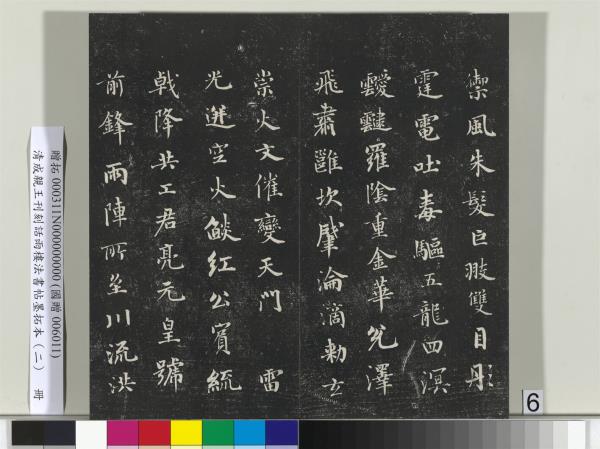 禦風朱髮巨翅雙目彤
霆電吐毒驅五龍四溟
靉靆羅陰重金華澤
飛肅坎肇淪滴勑玄
崇火文催變天門 雷
光迸空火燄紅公賓統
戟降共工君亮元皇號
前鋒雨陣所至川流洪
贈拓 000311N000000000 (國贈 006011)
清成親王刊刻話雨樓法書帖墨拓本（二） 冊
6